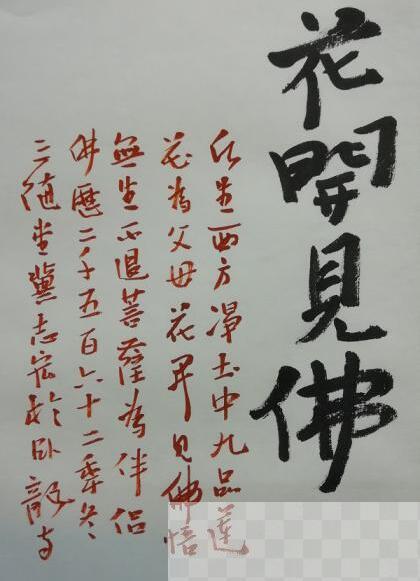 花開見佛
願生西方淨土中九品蓮
花為父母花開見佛悟
無生不退菩薩為伴侣
佛歷二千五百六十二年冬
隨堂冀志宏於卧龍寺